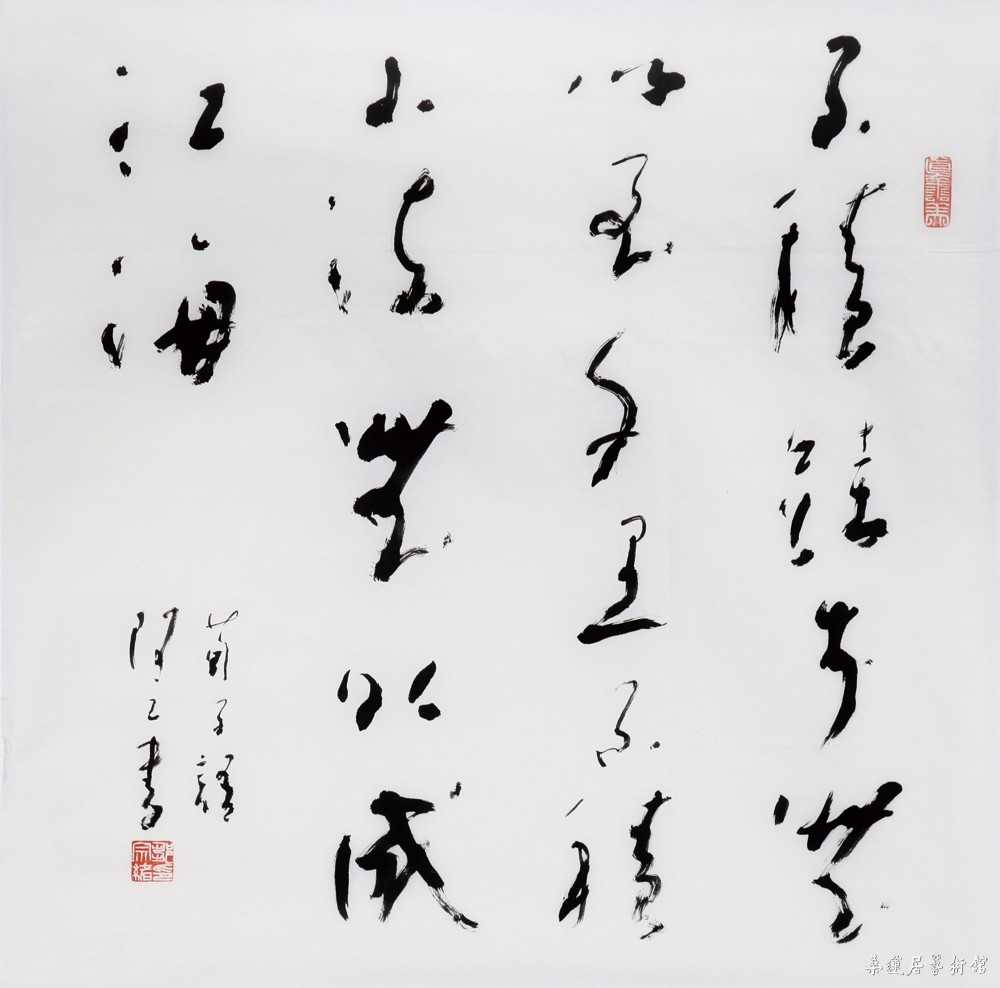 不積跬步無
以至千里不積
小流無以成
江海
荀子語
書
桑蓮居藝術館